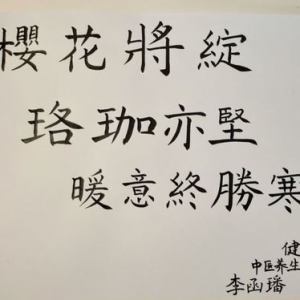 櫻花將綻
珞珈亦堅
暖意終勝寒
健
中医养生
李函璠